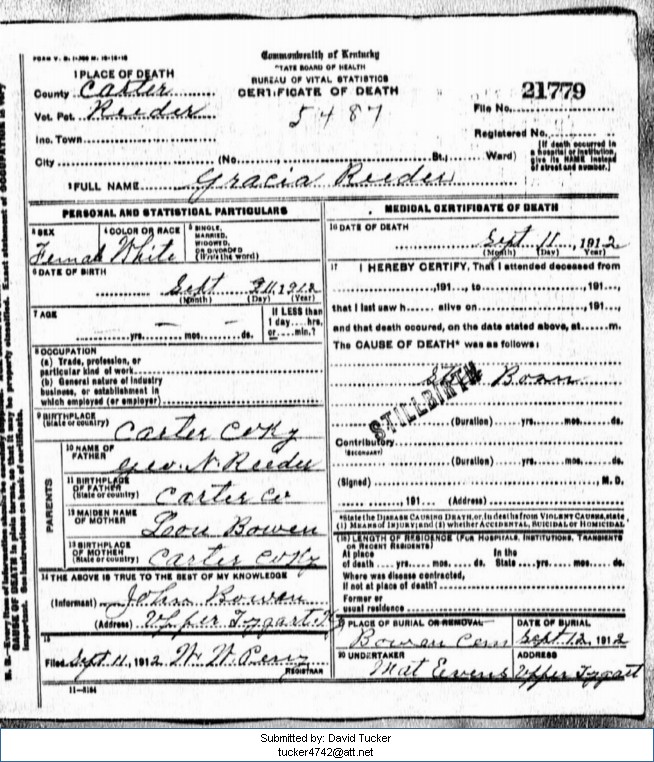 FORM V. S. 1-
Commonwealth of Kentucky
STATE BOARD OF HEALTH
BUREAU OF VITAL STATISTICS
CERTIFICATE OF DEATH
5487
21779
1 PLACE OF DEATH
County Carter
Vot. Pct. Reeder
File No.
Inc. Town
Registered No.
City (No. St., Ward)
[If death occurred in a hospital or institution, give its NAME instead of street and number.]
2 FULL NAME Gracia Reeder
PERSONAL AND STATISTICAL PARTICULARS
3 SEX Female
4 COLOR OR RACE White
5 SINGLE, MARRIED, WIDOWED, OR DIVORCED (Write the word)
6 DATE OF BIRTH
Sept 11, 1912
(Month) (Day) (Year)
7 AGE
yrs. mos. ds.
If LESS than 1 day....hrs. or....min.?
8 OCCUPATION
(a) Trade, profession, or
particular kind of work
(b) General nature of industry
business, or establishment in
which employed (or employer)
9 BIRTHPLACE
(State or country) Carter Co Ky
PARENTS
10 NAME OF FATHER Geo. N. Reeder
11 BIRTHPLACE OF FATHER
(State or country) Carter Co
12 MAIDEN NAME OF MOTHER Lou Bowen
13 BIRTHPLACE OF MOTHER
(State or country) Carter Co Ky
14 THE ABOVE IS TRUE TO THE BEST OF MY KNOWLEDGE
(Informant) John Bowen
(Address) Upper Tygart Ky
15
Filed Sept 11, 1912 W. W. Perry
REGISTRAR
11-3184
MEDICAL CERTIFICATE OF DEATH
16 DATE OF DEATH
Sept 11, 1912
(Month) (Day) (Year)
17 I HEREBY CERTIFY, That I attended deceased from
, 191 , to , 191 ,
that I last saw h alive on , 191 ,
and that death occured, on the date stated above, at m.
The CAUSE OF DEATH* was as follows:
Still Born
STILLBIRTH
(Duration) yrs. mos. ds.
Contributory
(SECONDARY)
(Duration) yrs. mos. ds.
(Signed) , M. D.
, 191 (Address)
*State the DISEASE CAUSING DEATH, or, in deaths from VIOLENT CAUSES, state
(1) MEANS OF INJURY; and (2) whether ACCIDENTAL, SUICIDAL or HOMICIDAL.
18 LENGTH OF RESIDENCE (FOR HOSPITALS, INSTITUTIONS, TRANSIENTS
OR RECENT RESIDENTS)
At place of death yrs. mos. ds. In the State yrs. mos. ds.
Where was disease contracted,
if not at place of death?
Former or
usual residence
19 PLACE OF BURIAL OR REMOVAL DATE OF BURIAL
Bowen Cem Sept 12, 1912
20 UNDERTAKER ADDRESS
Mat Evens Upper Tygart
Submitted by: David Tucker
tucker4742@att.net